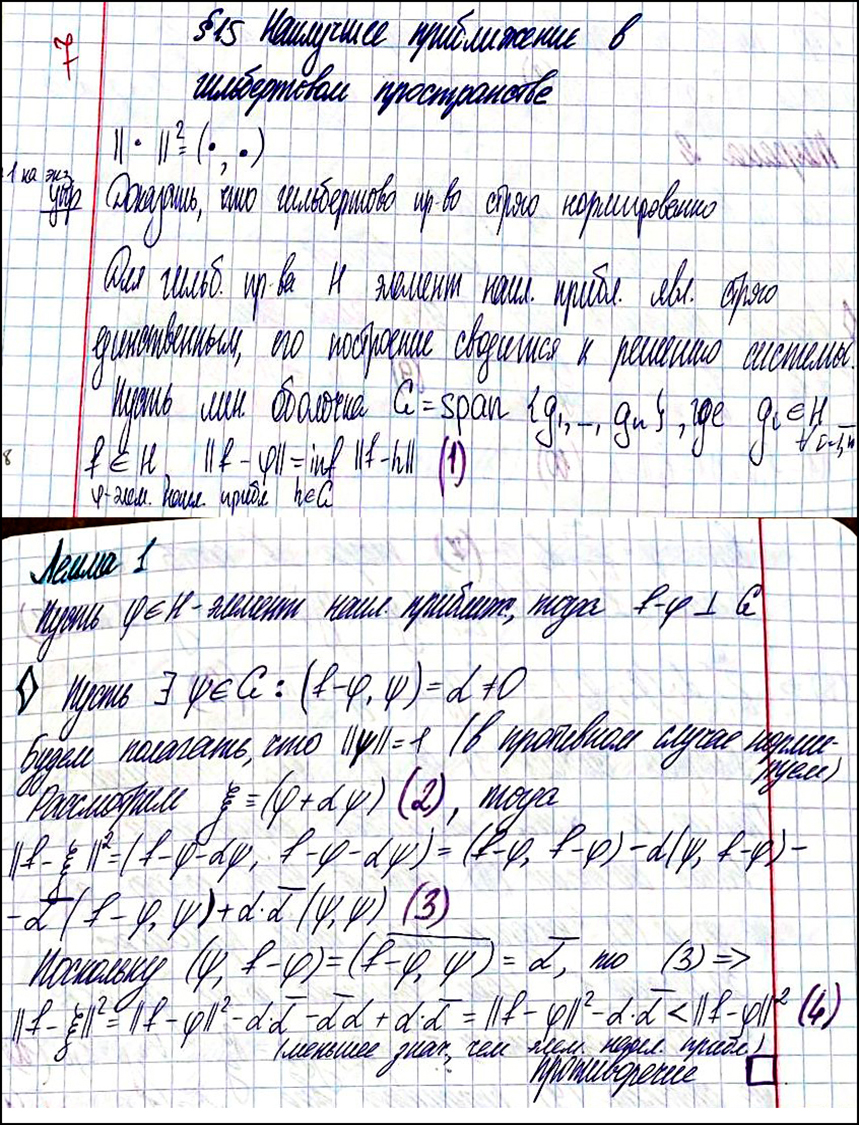 7
§15 Наилучшее приближение в
гильбертовом пространстве
||·||² = (·,·)
1 на экз
упр Доказать, что гильбертово пр-во строго нормировано
Для гильб. пр-ва H элемент наил. прибл. явл. строго
единственным, его построение сводится к решению системы.
Пусть лин оболочка G = span {g₁,…,gₙ}, где gᵢ ∈ H
∀ i=1,n
8
f ∈ H ||f - φ|| = inf ||f-h|| (1)
φ-элем. наил. прибл h∈G
Лемма 1
Пусть φ∈H - элемент наил приближ, тогда f-φ ⊥ G
◊ Пусть ∃ ψ∈G: (f-φ, ψ) = α ≠ 0
Будем полагать, что ||ψ|| = 1 (в противном случае норми-
руем)
Рассмотрим ξ ≡ (φ + αψ) (2), тогда
||f-ξ||² = (f-φ-αψ, f-φ-αψ) = (f-φ, f-φ) - α(ψ, f-φ) -
- α̅(f-φ, ψ) + α·α̅(ψ, ψ) (3)
Поскольку (ψ, f-φ) = \overline{(f-φ, ψ)} = α̅, то (3) =>
||f-ξ||² = ||f-φ||² - α·α̅ - α̅α + α·α̅ = ||f-φ||² - α·α̅ < ||f-φ||² (4)
(меньшее знач, чем элем. наил. прибл)
противоречие □